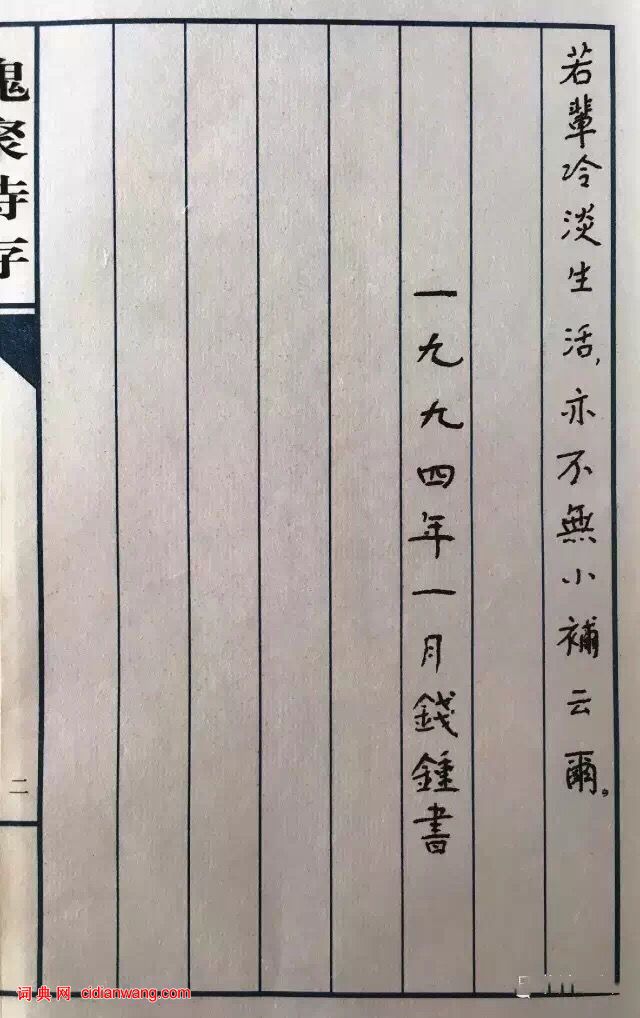 若輩冷淡生活，亦不無小補云爾。
一九九四年一月錢鍾書
槐聚诗存
二
词典网 cidianwang.com